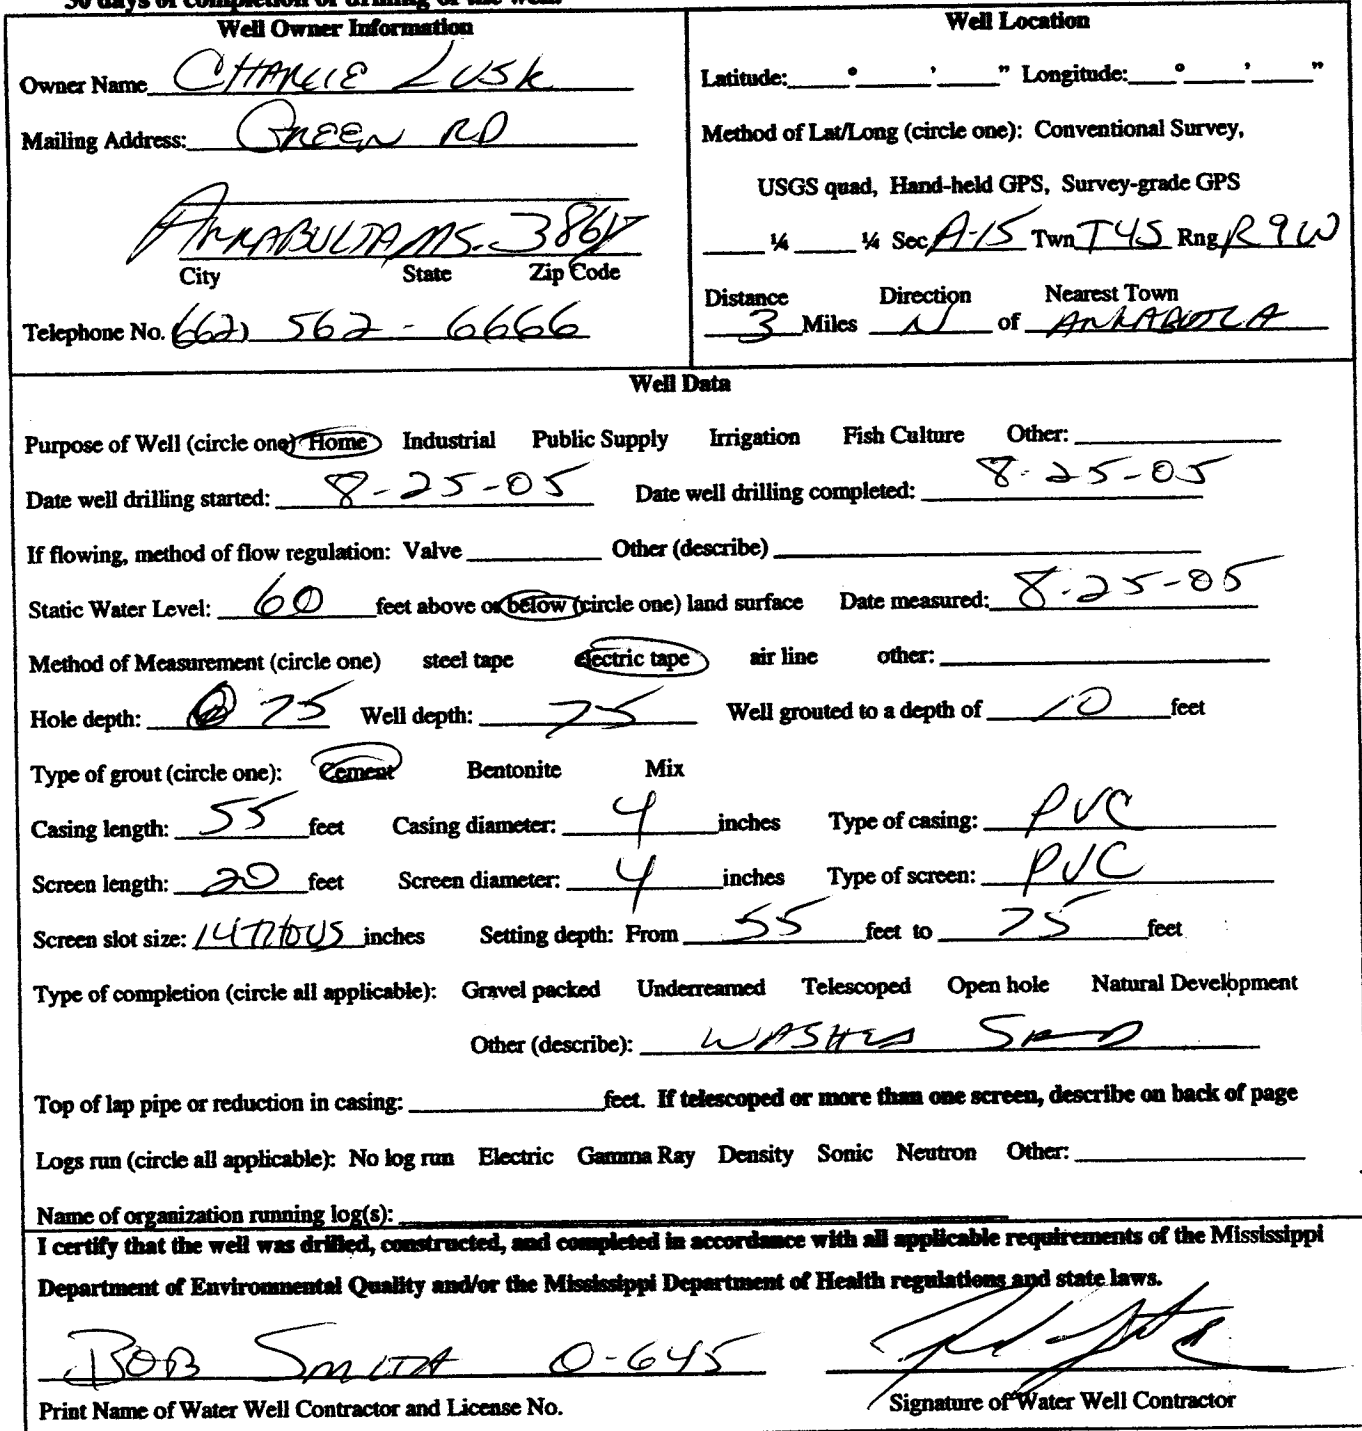 30 days of completion of drilling of the well.
Well Owner Information
Owner Name CHARLIE LUSK
Mailing Address: GREEN RD
ARKABULTA MS. 386
City State Zip Code
Telephone No. (662) 562-6666
Well Location
Latitude: ___° ___' ___" Longitude: ___° ___' ___"
Method of Lat/Long (circle one): Conventional Survey,
USGS quad, Hand-held GPS, Survey-grade GPS
___ ¼ ___ ¼ Sec A-15 Twn T4S Rng R9W
Distance Direction Nearest Town
3 Miles N of ARKABUTLA
Well Data
Purpose of Well (circle one) Home Industrial Public Supply Irrigation Fish Culture Other: ___
Date well drilling started: 8-25-05 Date well drilling completed: 8-25-05
If flowing, method of flow regulation: Valve ___ Other (describe) ___
Static Water Level: 60 feet above or below (circle one) land surface Date measured: 8-25-05
Method of Measurement (circle one) steel tape electric tape air line other: ___
Hole depth: 75 Well depth: 75 Well grouted to a depth of 10 feet
Type of grout (circle one): Cement Bentonite Mix
Casing length: 55 feet Casing diameter: 4 inches Type of casing: PVC
Screen length: 20 feet Screen diameter: 4 inches Type of screen: PVC
Screen slot size: 14 THOUS inches Setting depth: From 55 feet to 75 feet
Type of completion (circle all applicable): Gravel packed Underreamed Telescoped Open hole Natural Development
Other (describe): WASHED SAND
Top of lap pipe or reduction in casing: ___ feet. If telescoped or more than one screen, describe on back of page
Logs run (circle all applicable): No log run Electric Gamma Ray Density Sonic Neutron Other: ___
Name of organization running log(s): ___
I certify that the well was drilled, constructed, and completed in accordance with all applicable requirements of the Mississippi
Department of Environmental Quality and/or the Mississippi Department of Health regulations and state laws.
BOB SMITH 0-645
Print Name of Water Well Contractor and License No.
Signature of Water Well Contractor